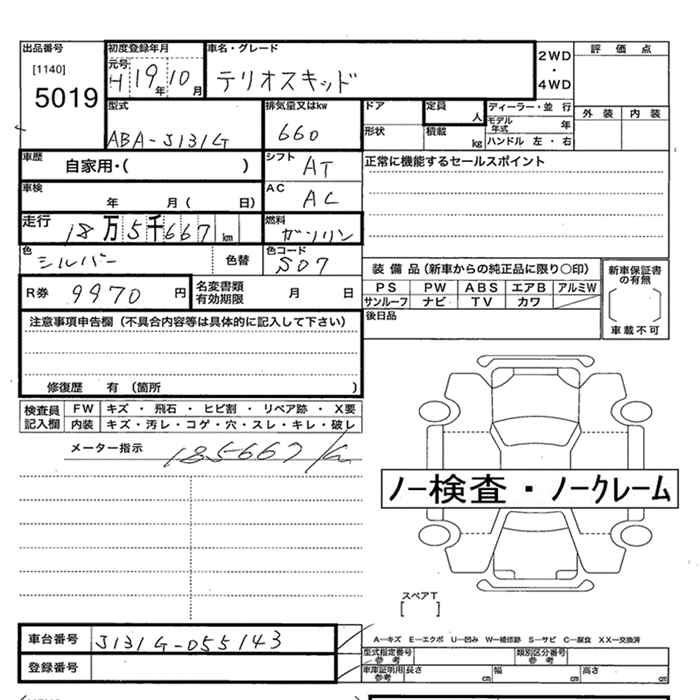 出品番号
[1140]
5019
初度登録年月
元号
H 19年 10月
車名・グレード
テリオスキッド
2WD
・
4WD
評価点
外装 内装
型式
ABA-J131G
排気量又はkw
660
ドア
形状
定員
人
積載
kg
ディーラー・並行
モデル年式 年
ハンドル 左・右
車歴
自家用・( )
シフト
AT
車検
年 月( 日)
AC
AC
走行
18万5千667km
燃料
ガソリン
色
シルバー
色替
色コード
S07
R券 9970円
名変書類
有効期限
月 日
正常に機能するセールスポイント
装備品(新車からの純正品に限り○印)
PS PW ABS エアB アルミW
サンルーフ ナビ TV カワ
後日品
新車保証書
の有無
車載不可
注意事項申告欄(不具合内容等は具体的に記入して下さい)
修復歴 有(箇所 )
検査員
記入欄
FW キズ・飛石・ヒビ割・リペア跡・X要
内装 キズ・汚レ・コゲ・穴・スレ・キレ・破レ
メーター指示
185667km
ノー検査・ノークレーム
スペアT
[ ]
車台番号 J131G-055143
登録番号
A―キズ E―エクボ U―凹み W―補修跡 S―サビ C―腐食 XX―交換済
型式指定番号
参考
類別区分番号
参考
車庫証明用
参考
長さ cm 幅 cm 高さ cm